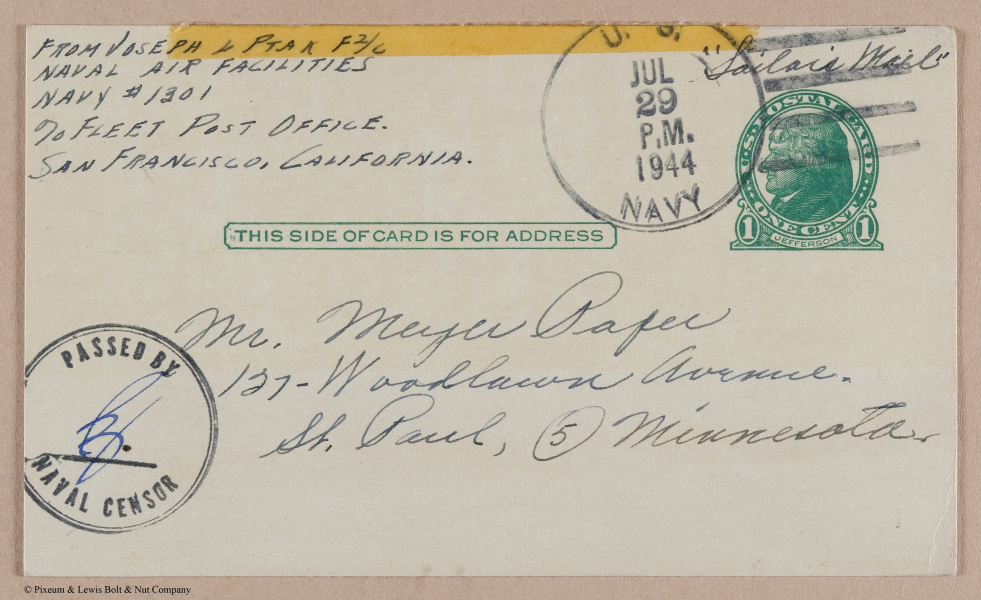 FROM JOSEPH L PTAK F2/C
NAVAL AIR FACILITIES
NAVY #1301
℅ FLEET POST OFFICE.
SAN FRANCISCO, CALIFORNIA.
U. S.
JUL
29
P.M.
1944
NAVY
"Sailors Mail"
U.S. POSTAL CARD
ONE CENT
1 JEFFERSON 1
THIS SIDE OF CARD IS FOR ADDRESS
Mr. Meyer Paper
137-Woodlawn Avenue.
St. Paul, 5 Minnesota.
PASSED BY
NAVAL CENSOR
© Pixeum & Lewis Bolt & Nut Company